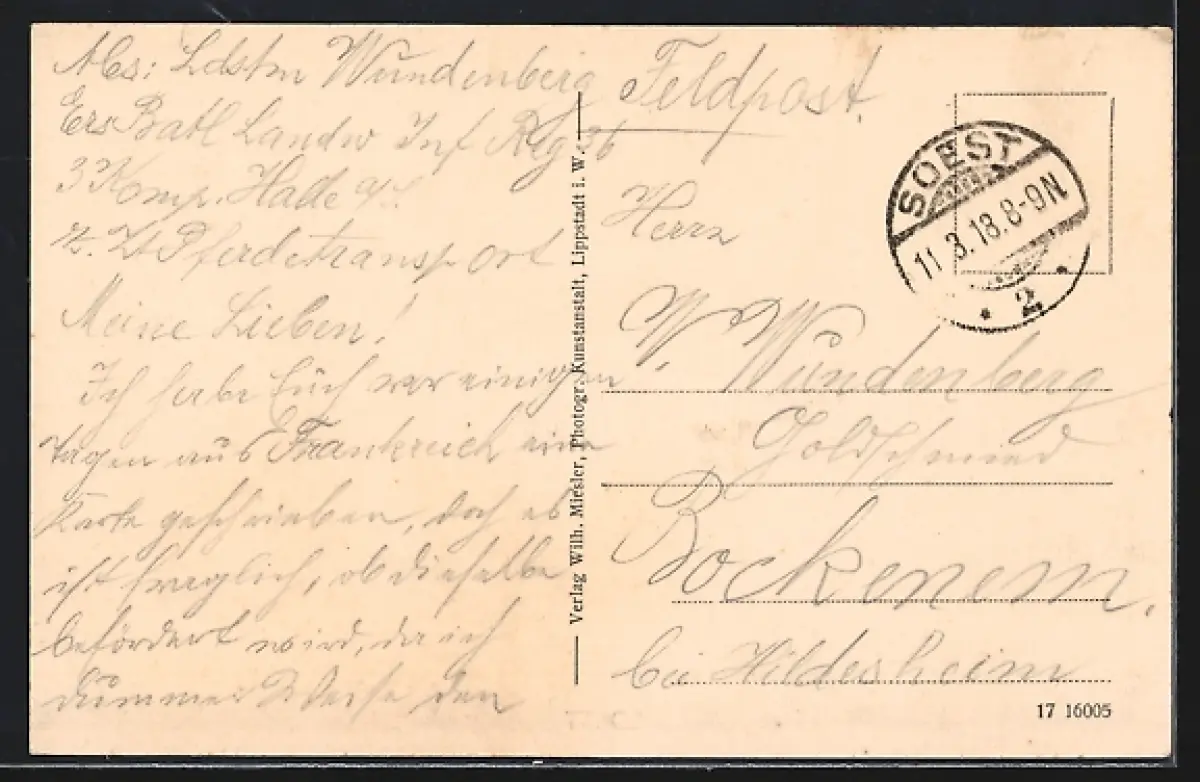 Abs: Ldstm Wundenberg
Ers Batl Landw Inf Reg 36
3 Komp. Halle a/S.
z. Zt Pferdetransport
Meine Lieben!
Ich habe Euch vor einigen
Tagen aus Frankreich eine
Karte geschrieben, doch es
ist fraglich, ob dieselbe
befördert wird, da ich
dummer Weise den
Feldpost.
Herrn
W. Wundenberg
Goldschmied
Bockenem.
bei Hildesheim
SOEST
11.3.18.8-9N
* 2 *
Verlag Wilh. Miesler, Photogr. Kunstanstalt, Lippstadt i. W.
17 16005